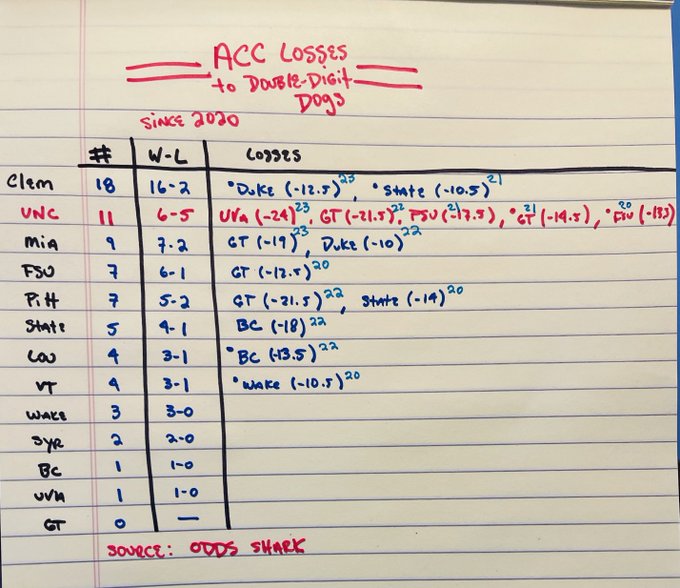 ACC LOSSES
to DOUBLE-DIGIT
DOGS
SINCE 2020
# W-L LOSSES
Clem 18 16-2 *Duke (-12.5)23, *State (-10.5)21
UNC 11 6-5 UVA (-24)23, GT (-21.5)22, FSU (-17.5)21, *GT (-14.5)21, *FSU (-13.5)20
Mia 9 7-2 GT (-19)23, Duke (-10)22
FSU 7 6-1 GT (-12.5)20
Pitt 7 5-2 GT (-21.5)22, State (-14)20
State 5 4-1 BC (-18)22
Lou 4 3-1 *BC (-13.5)22
VT 4 3-1 *Wake (-10.5)20
WAKE 3 3-0
SYR 2 2-0
BC 1 1-0
UVA 1 1-0
GT 0 —
SOURCE: ODDS SHARK